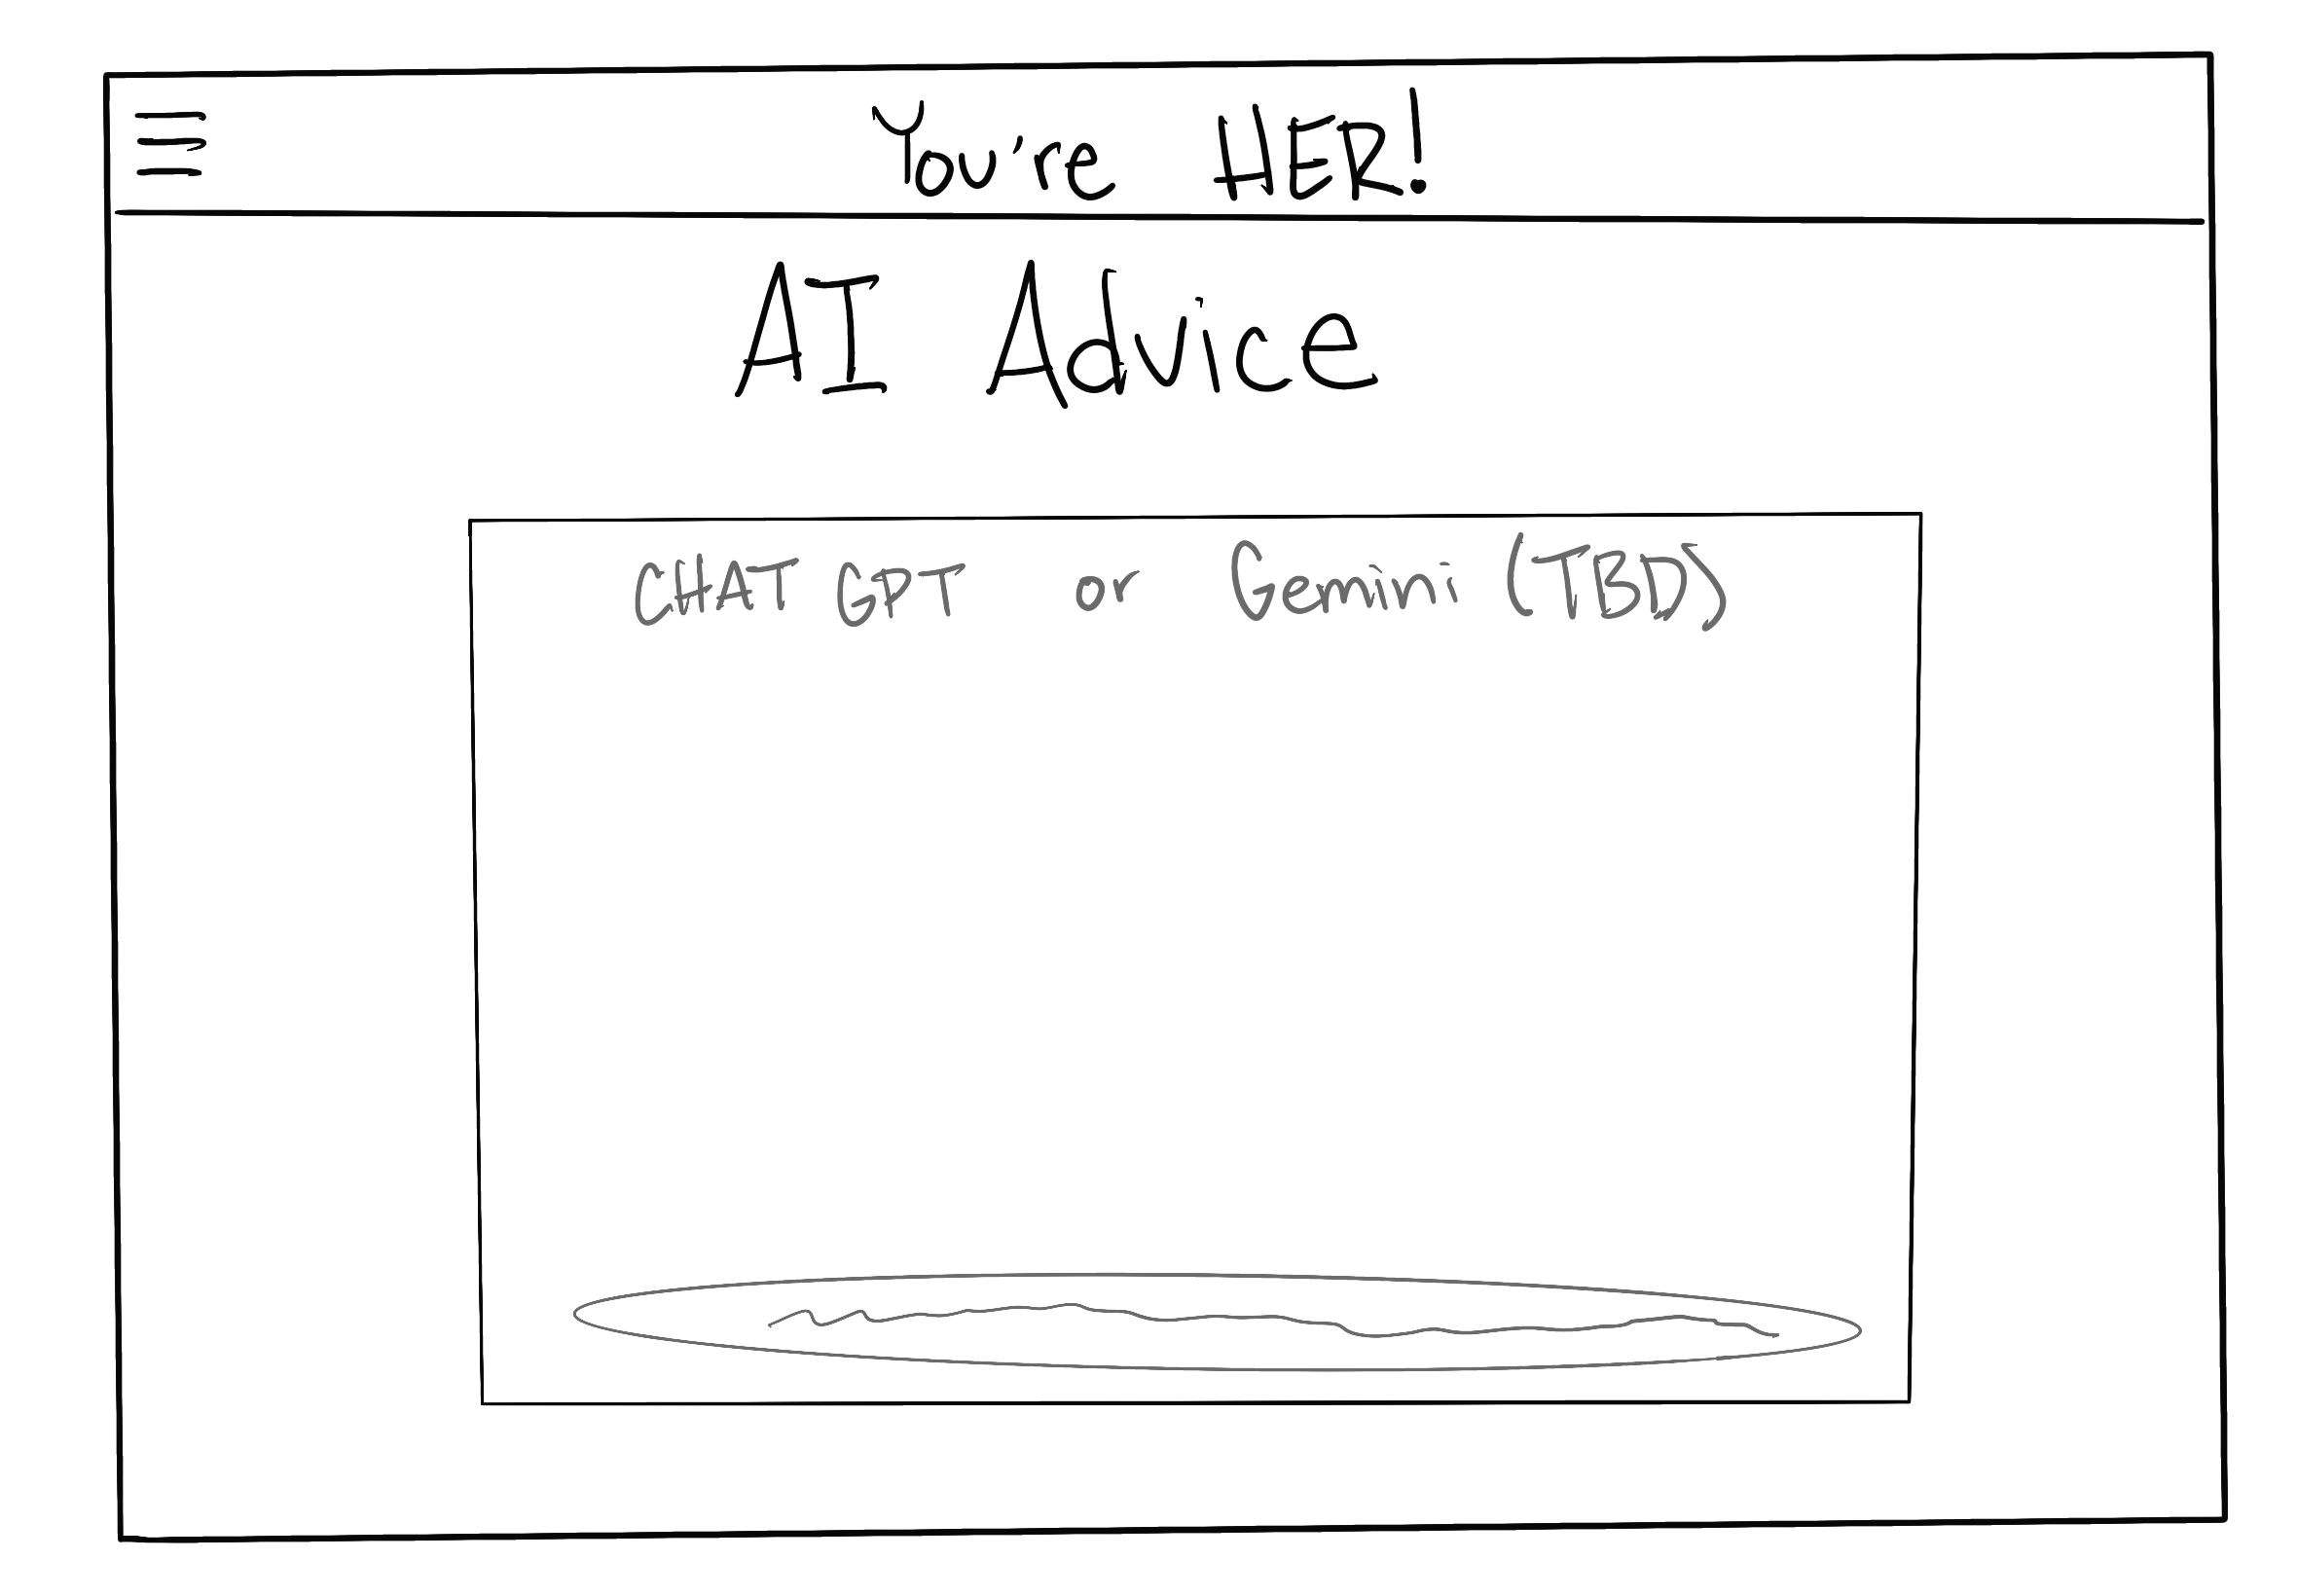 You're HER!
AI Advice
CHAT GPT or Gemini (TBD)